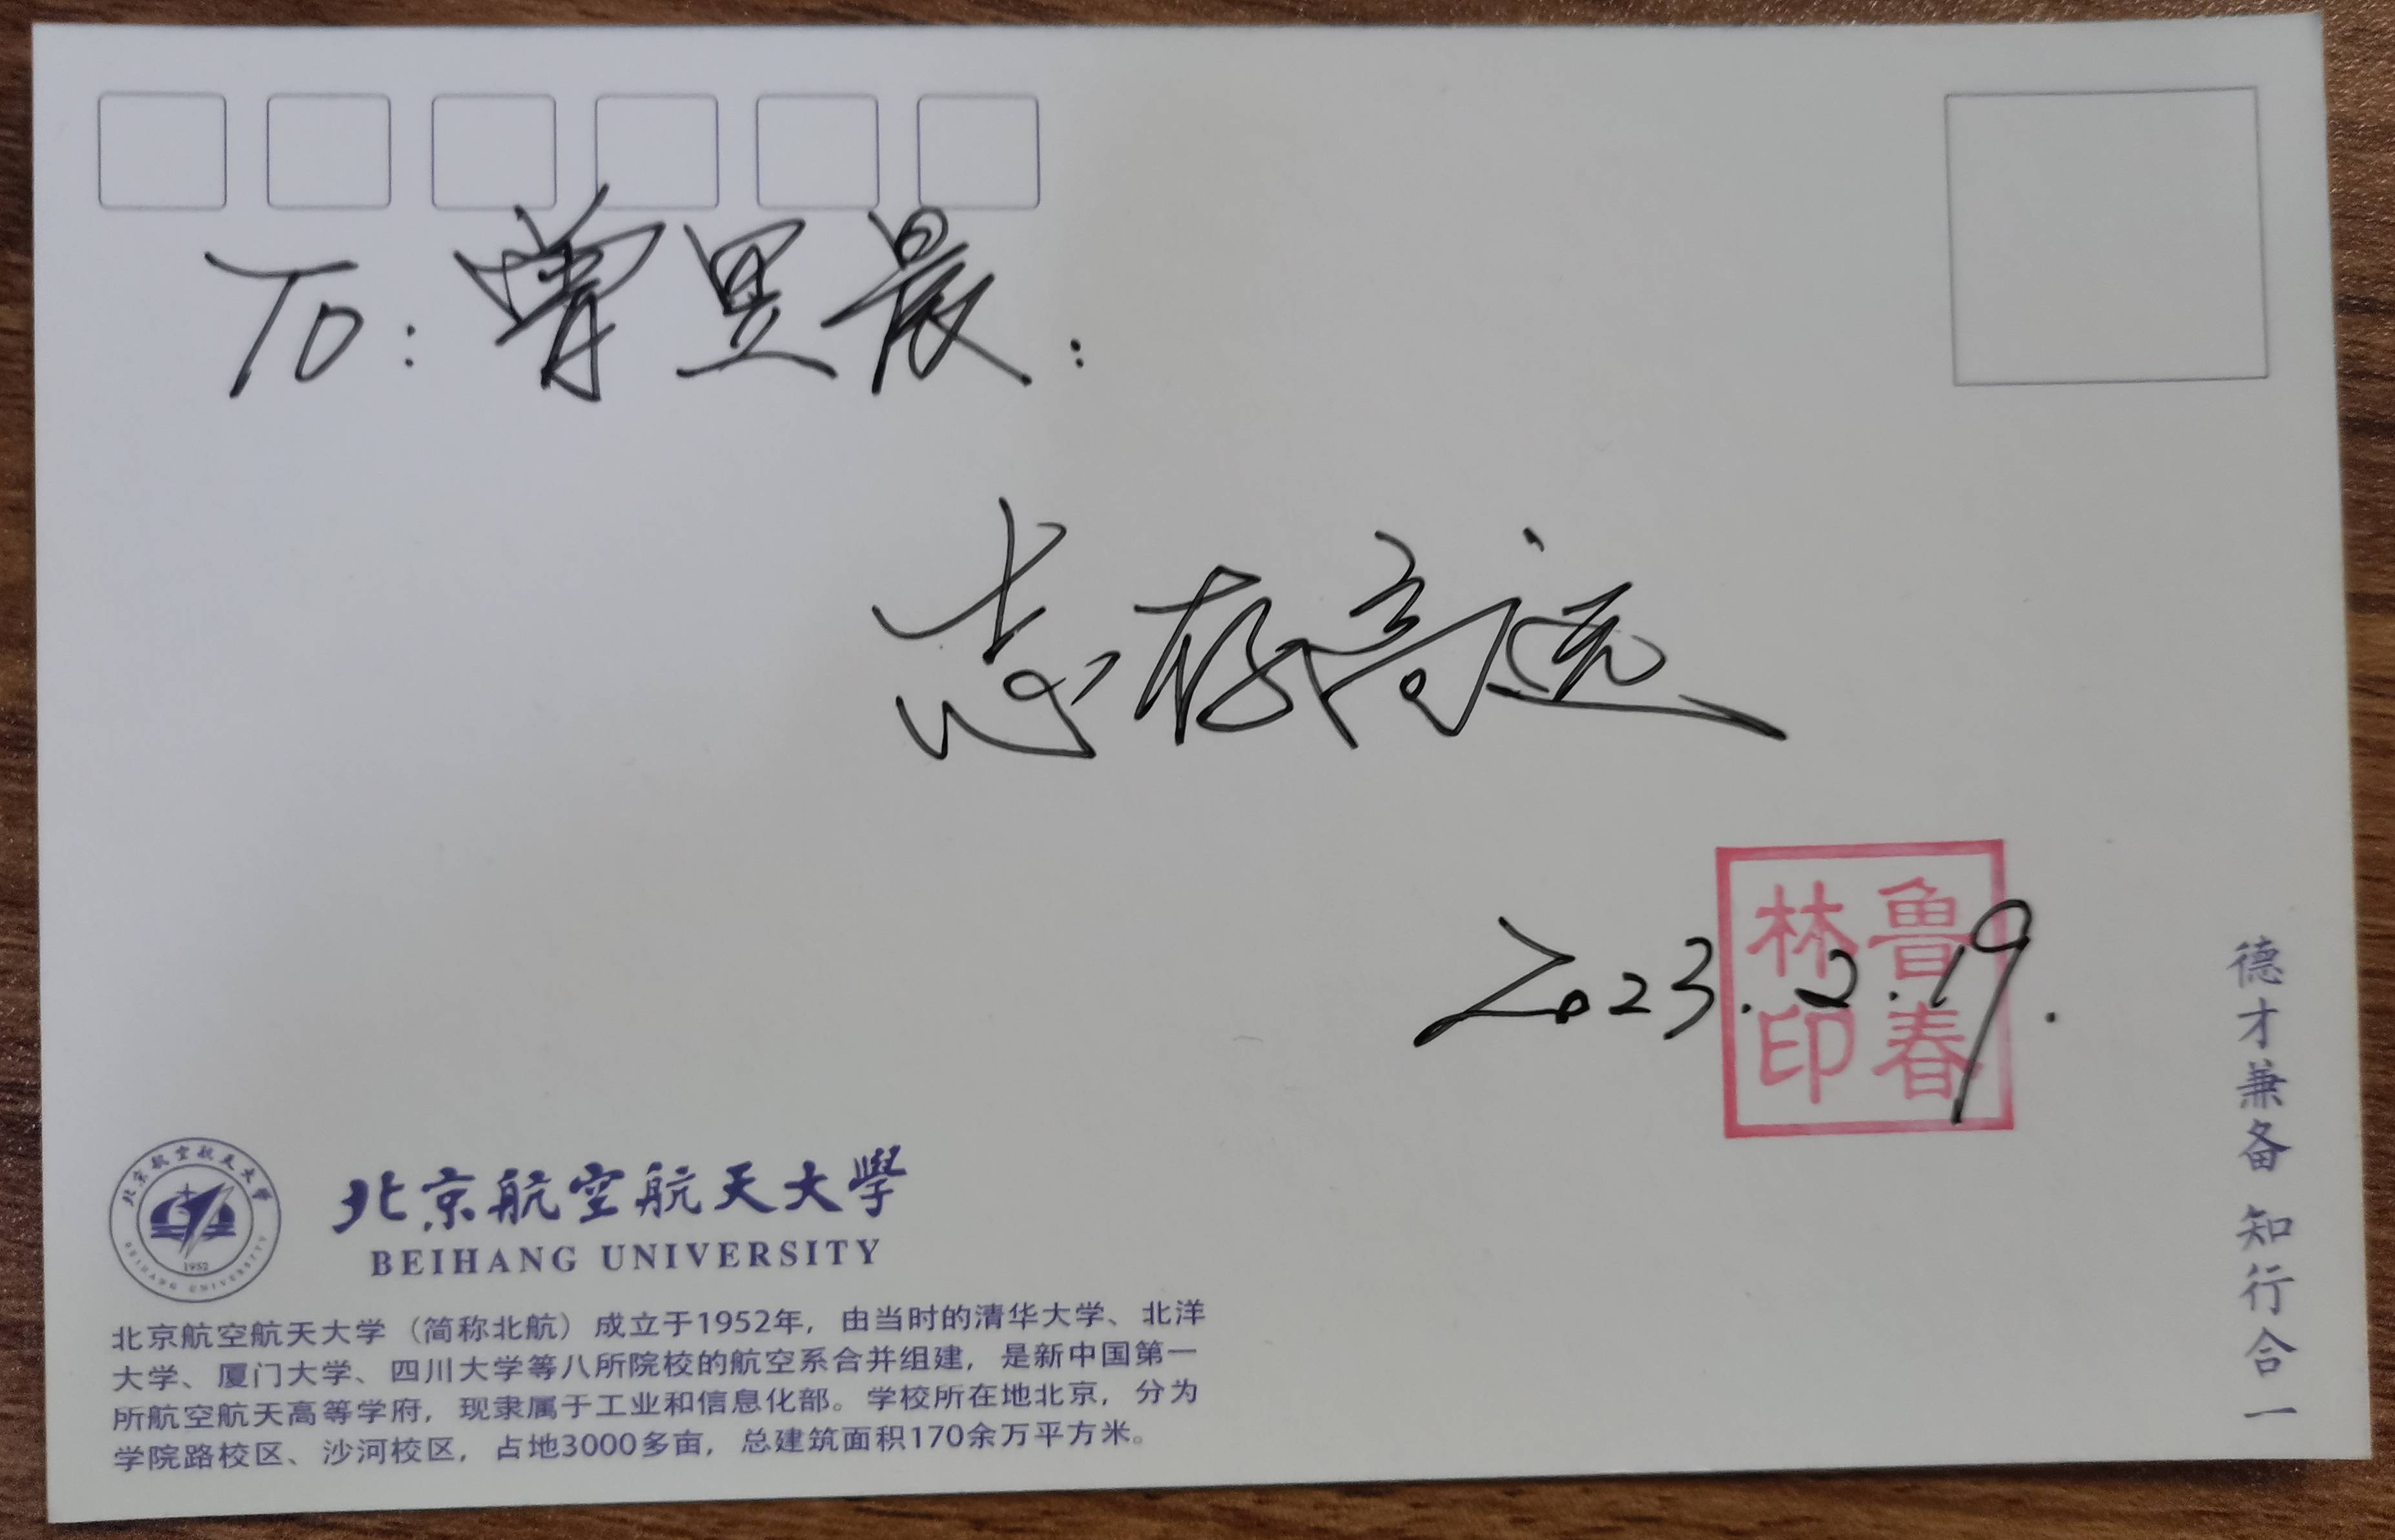 To: 曾昱晨:
志存高远
2023.2.19.
鲁春
林印
北京航空航天大學
BEIHANG UNIVERSITY
北京航空航天大學
1952
BEIHANG UNIVERSITY
北京航空航天大学（简称北航）成立于1952年，由当时的清华大学、北洋
大学、厦门大学、四川大学等八所院校的航空系合并组建，是新中国第一
所航空航天高等学府，现隶属于工业和信息化部。学校所在地北京，分为
学院路校区、沙河校区，占地3000多亩，总建筑面积170余万平方米。
德才兼备 知行合一